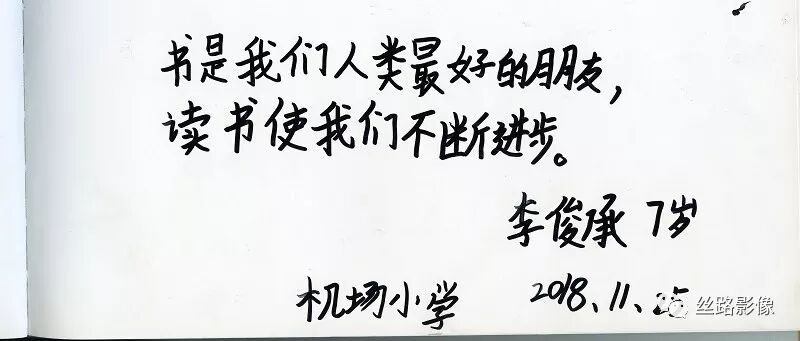 书是我们人类最好的朋友，
读书使我们不断进步。
李俊承 7岁
机场小学 2018、11、25
丝路影像